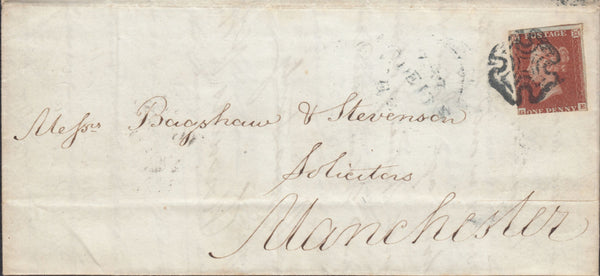 POSTAGE
ONE PENNY
Messrs Bagshaw & Stevenson
Soliciters
Manchester